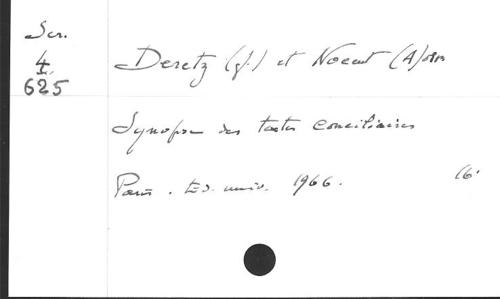 Scr.
4
625
Deretz (J.) et Nocent (A) OSB
Synopse des textes conciliaires
Paris. Ed. univ. 1966.
16.